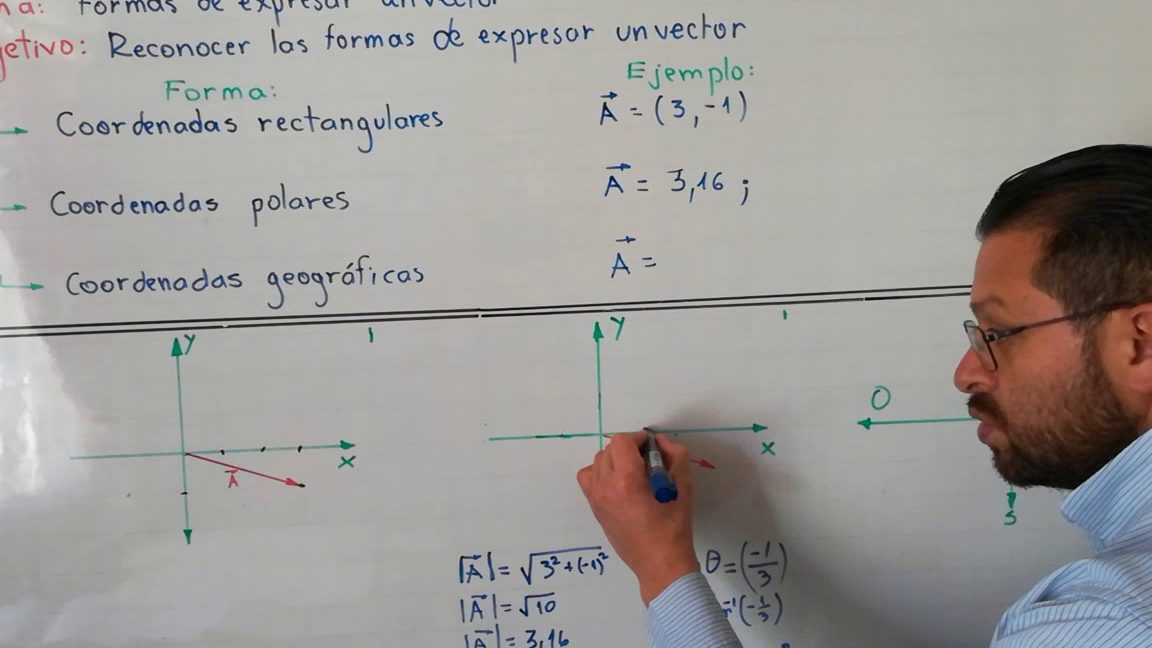 formas de expresar un vector
etivo: Reconocer las formas de expresar un vector
Forma:
Ejemplo:
Coordenadas rectangulares
A = (3, -1)
Coordenadas polares
A = 3,16 ;
Coordenadas geográficas
A =
y
x
A
y
x
O
S
|A| = √3² + (-1)²
|A| = √10
|A| = 3,16
θ = (-1/3)
(-1/3)